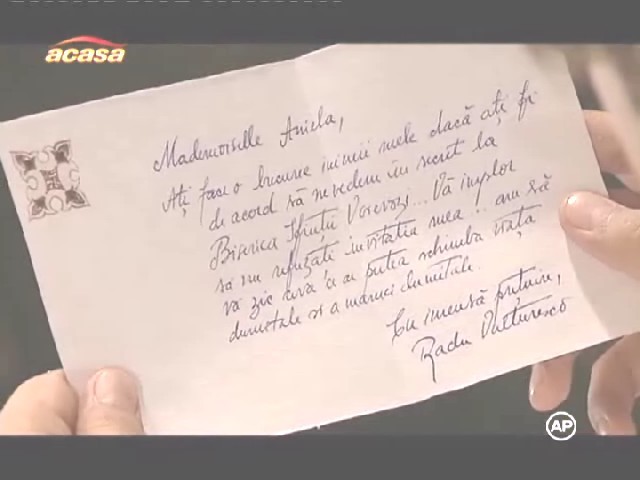 acasa
Mademoiselle Aniela,
Ați face o bucurie inimii mele dacă ați fi
de acord să ne vedem în secret la
Biserica Sfinții Voievozi... Vă implor
să nu refuzați invitația mea... am să
vă zic ceva ce ar putea schimba viața
dumitale și a mamei dumitale.
Cu imensă prețuire,
Radu Vulturesco
AP